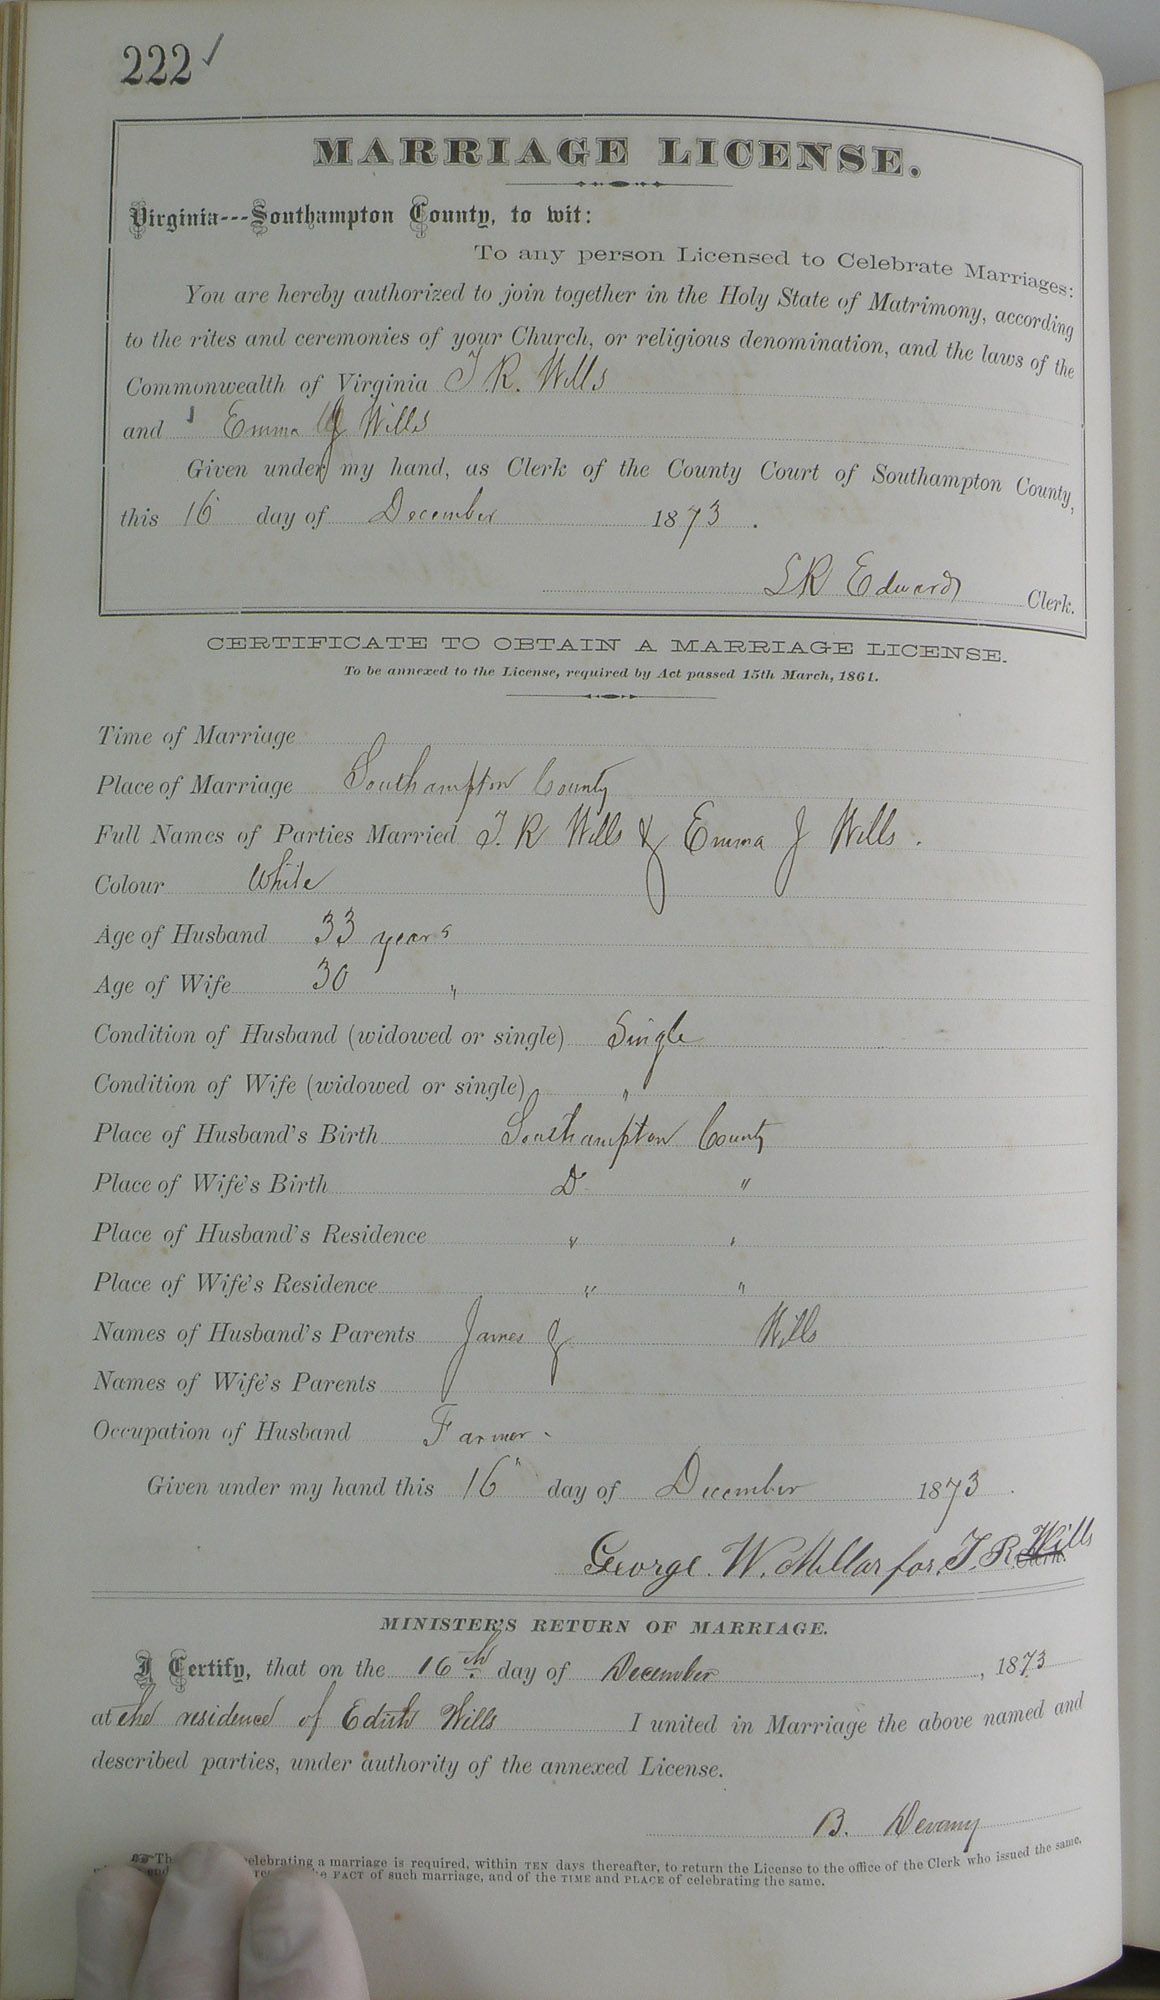 222 ✓
MARRIAGE LICENSE.
Virginia---Southampton County, to wit:
To any person Licensed to Celebrate Marriages:
You are hereby authorized to join together in the Holy State of Matrimony, according
to the rites and ceremonies of your Church, or religious denomination, and the laws of the
Commonwealth of Virginia J R. Wills
and Emma J Wills
Given under my hand, as Clerk of the County Court of Southampton County,
this 16 day of December 1873.
L R Edwards Clerk.
CERTIFICATE TO OBTAIN A MARRIAGE LICENSE.
To be annexed to the License, required by Act passed 15th March, 1861.
Time of Marriage
Place of Marriage Southampton County
Full Names of Parties Married J. R Wills & Emma J Wills.
Colour White
Age of Husband 33 years
Age of Wife 30 "
Condition of Husband (widowed or single) Single
Condition of Wife (widowed or single) "
Place of Husband's Birth Southampton County
Place of Wife's Birth Do "
Place of Husband's Residence " "
Place of Wife's Residence " "
Names of Husband's Parents James & Wills
Names of Wife's Parents
Occupation of Husband Farmer.
Given under my hand this 16" day of December 1873.
George. W. Millar for. J. R. Wills
MINISTER'S RETURN OF MARRIAGE.
I Certify, that on the 16th day of December, 1873
at the residence of Edith Wills I united in Marriage the above named and
described parties, under authority of the annexed License.
B. Devany
celebrating a marriage is required, within TEN days thereafter, to return the License to the office of the Clerk who issued the same,
FACT of such marriage, and of the TIME and PLACE of celebrating the same.